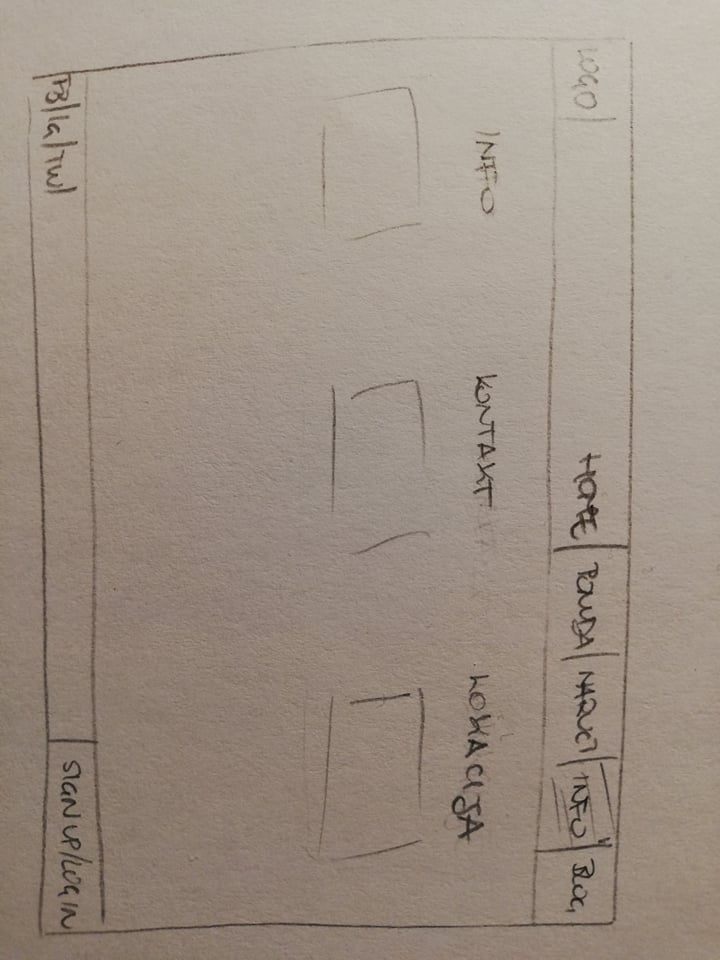 LOGO HOME PONUDA NARUČI INFO BLOG
INFO KONTAKT LOKACIJA
FB/IG/TW/ SIGN UP/LOGIN